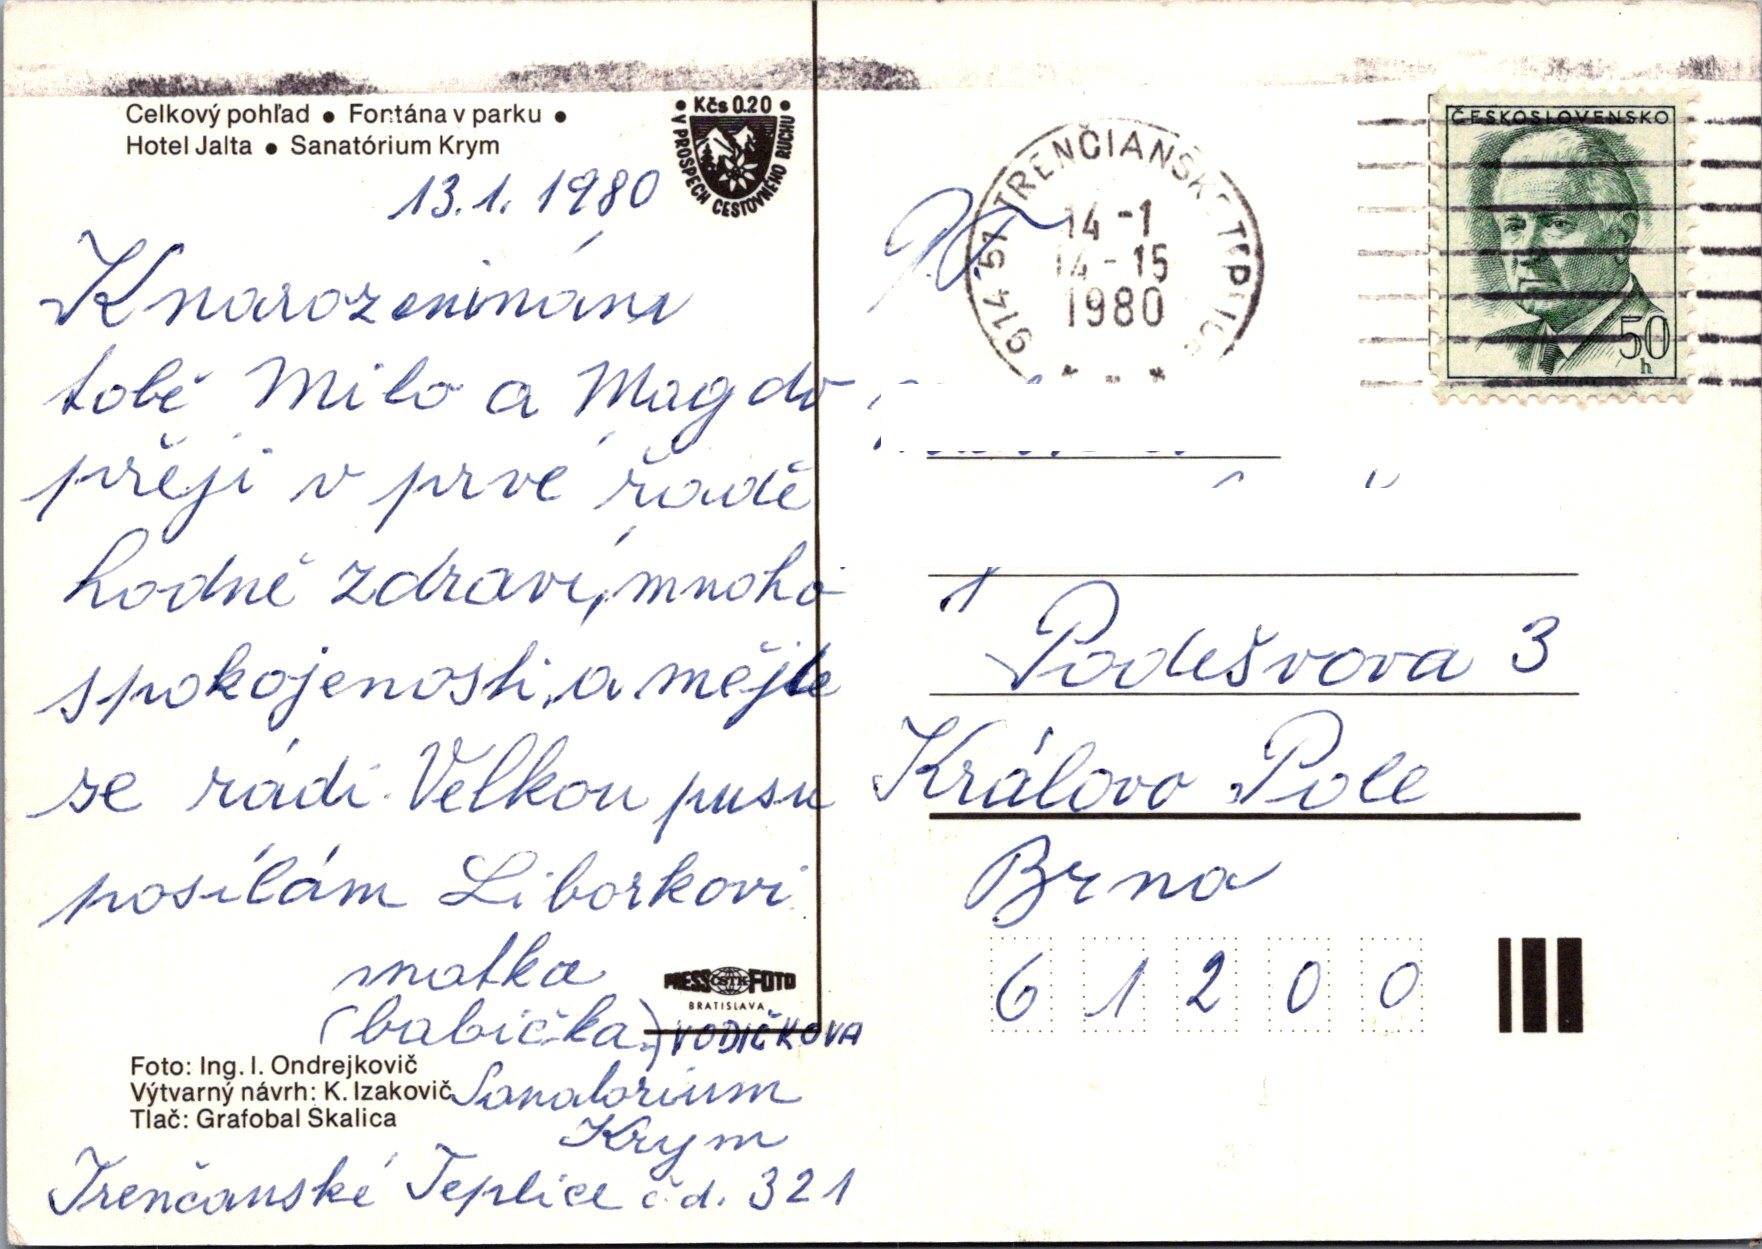 Celkový pohľad • Fontána v parku •
Hotel Jalta • Sanatórium Krym
• Kčs 0.20 •
V PROSPECH CESTOVNÉHO RUCHU
13.1.1980
K narozeninám
tobě Milo a Magdo
přeji v prvé řadě
hodně zdraví, mnoho
spokojenosti, a mějte
se rádi. Velkou pusu
posílám Liborkovi
matka
(babička) VODIČKOVA
PRESS ČSTK FOTO
BRATISLAVA
Foto: Ing. I. Ondrejkovič
Výtvarný návrh: K. Izakovič
Tlač: Grafobal Skalica
Sanatorium
Krym
Trenčanské Teplice č.d. 321
914 51 TRENČIANSKE TEPLICE
14 -1
14 - 15
1980
ČESKOSLOVENSKO
50
h
Podešvova 3
Královo Pole
Brno
61200